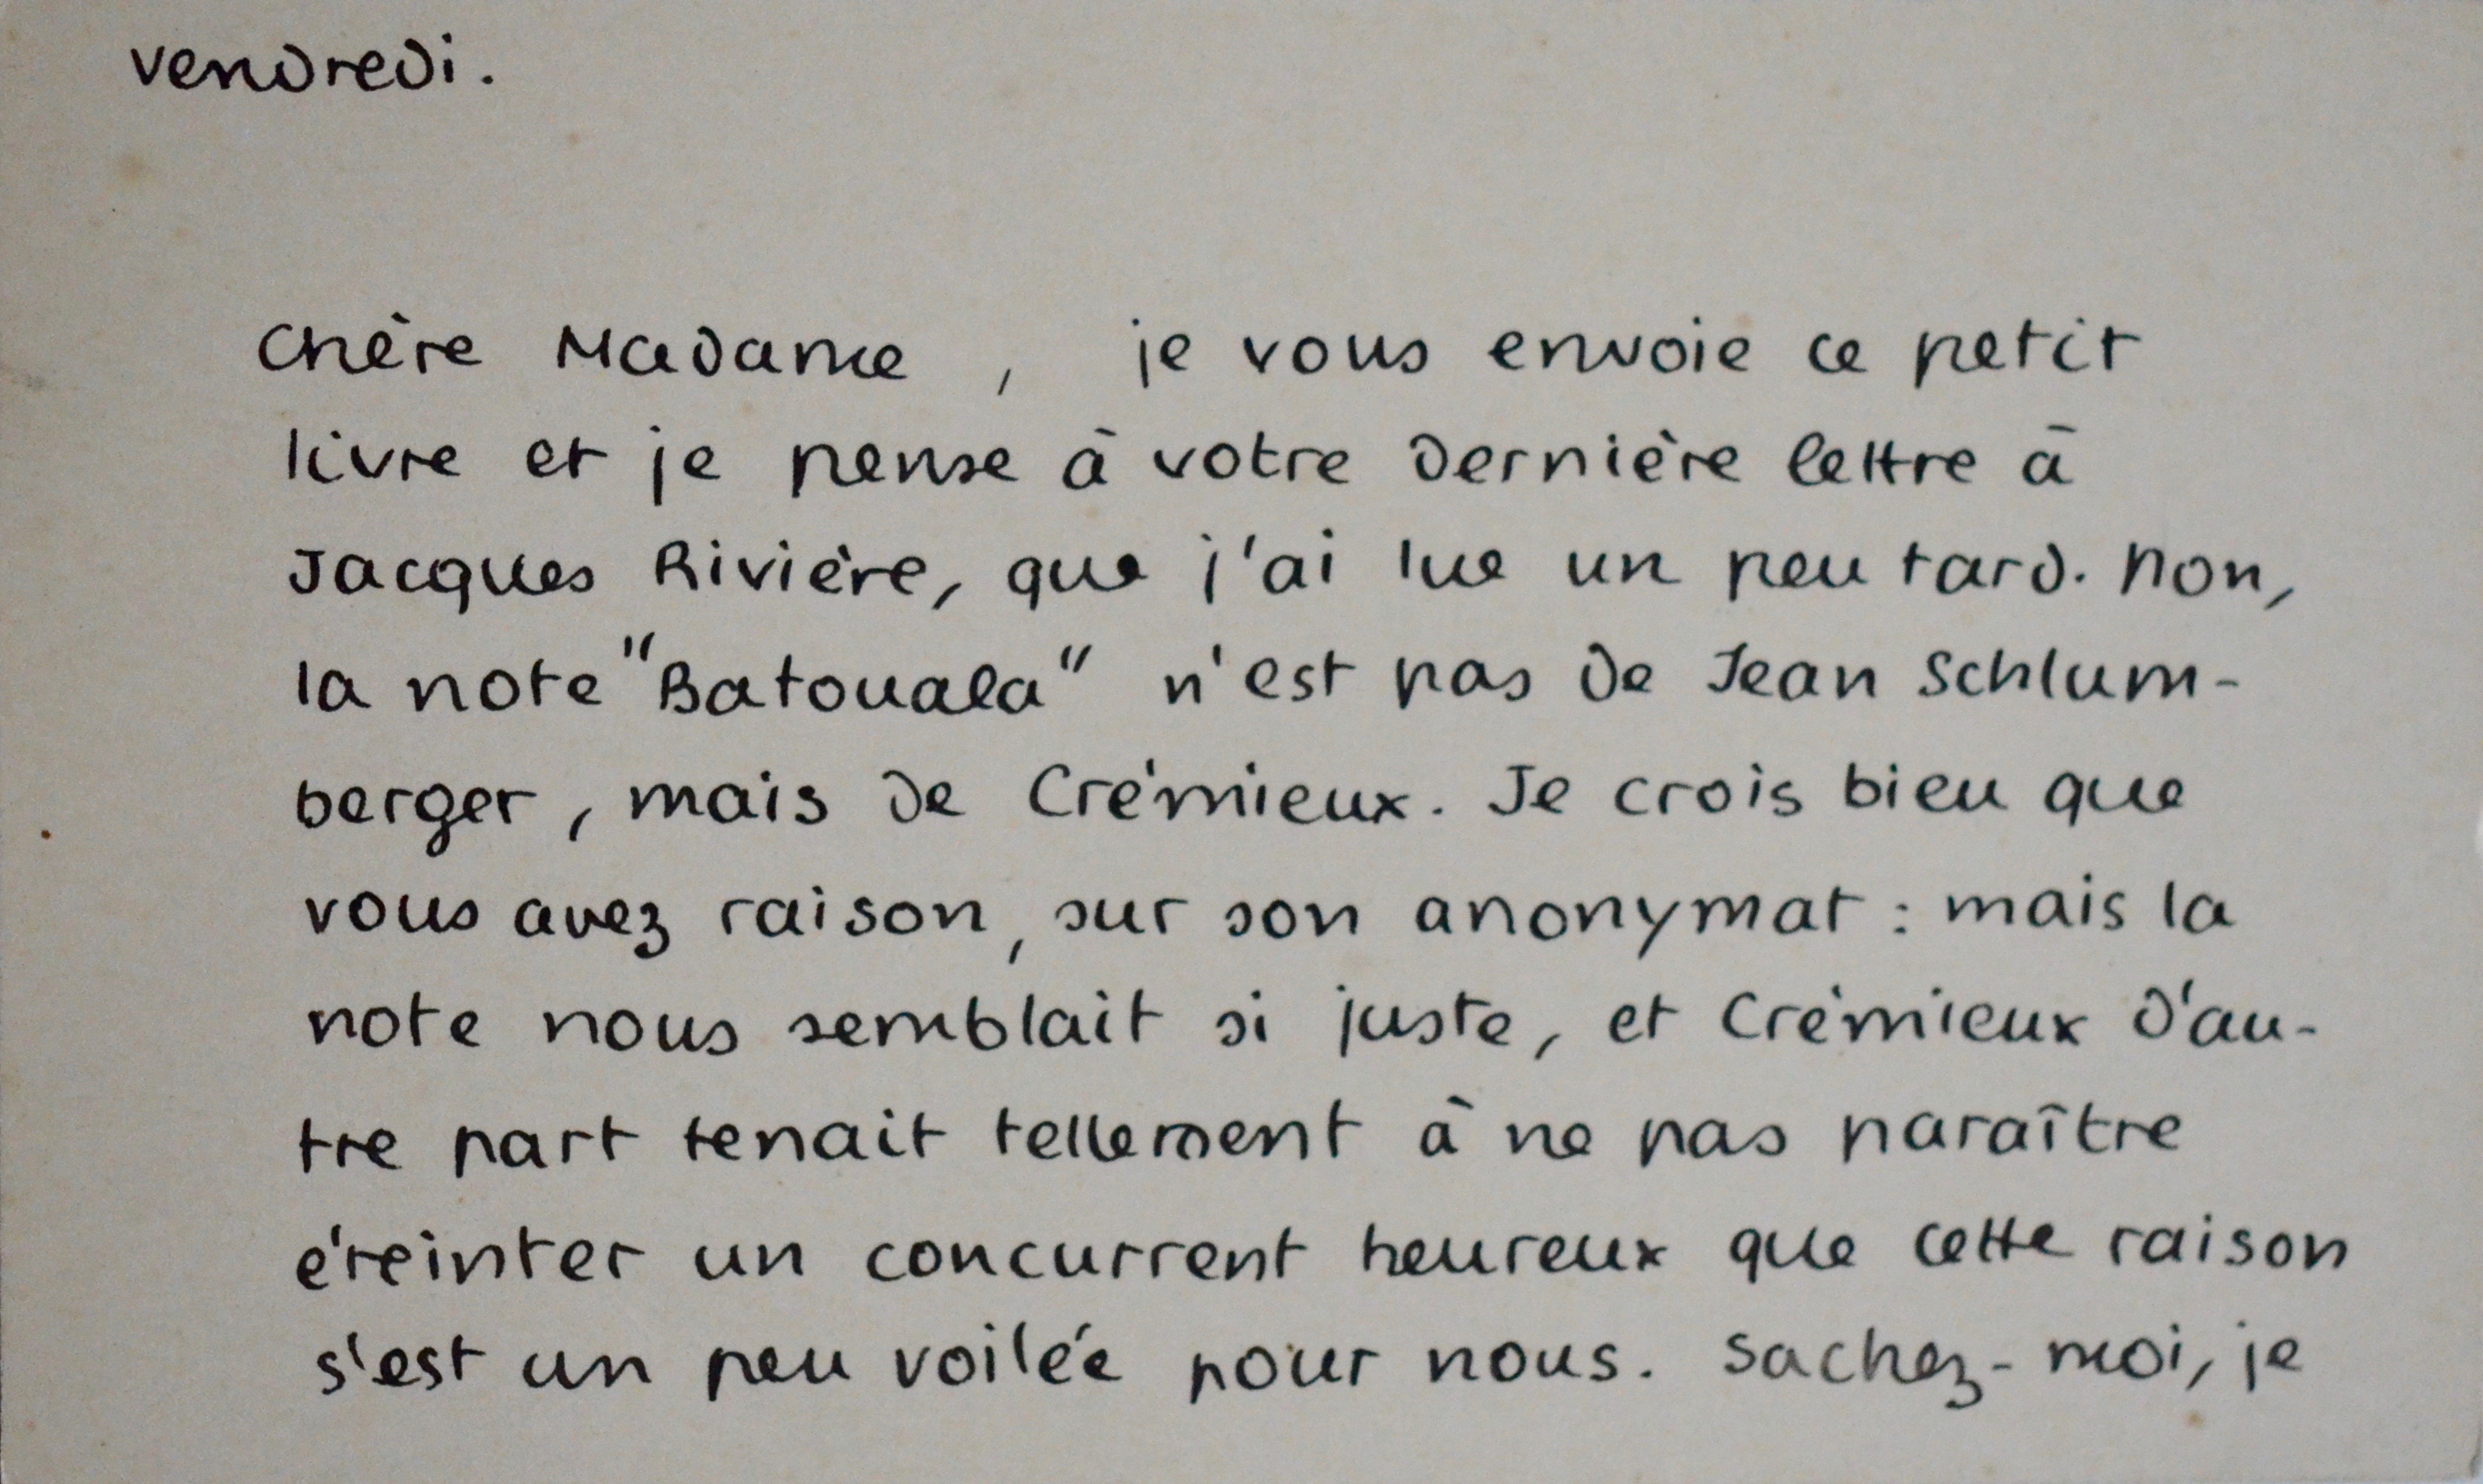 vendredi.
Chère Madame, je vous envoie ce petit
livre et je pense à votre dernière lettre à
Jacques Rivière, que j'ai lue un peu tard. Non,
la note "Batouala" n'est pas de Jean Schlum-
berger, mais de Crémieux. Je crois bien que
vous avez raison, sur son anonymat : mais la
note nous semblait si juste, et Crémieux d'au-
tre part tenait tellement à ne pas paraître
éreinter un concurrent heureux que cette raison
s'est un peu voilée pour nous. Sachez-moi, je